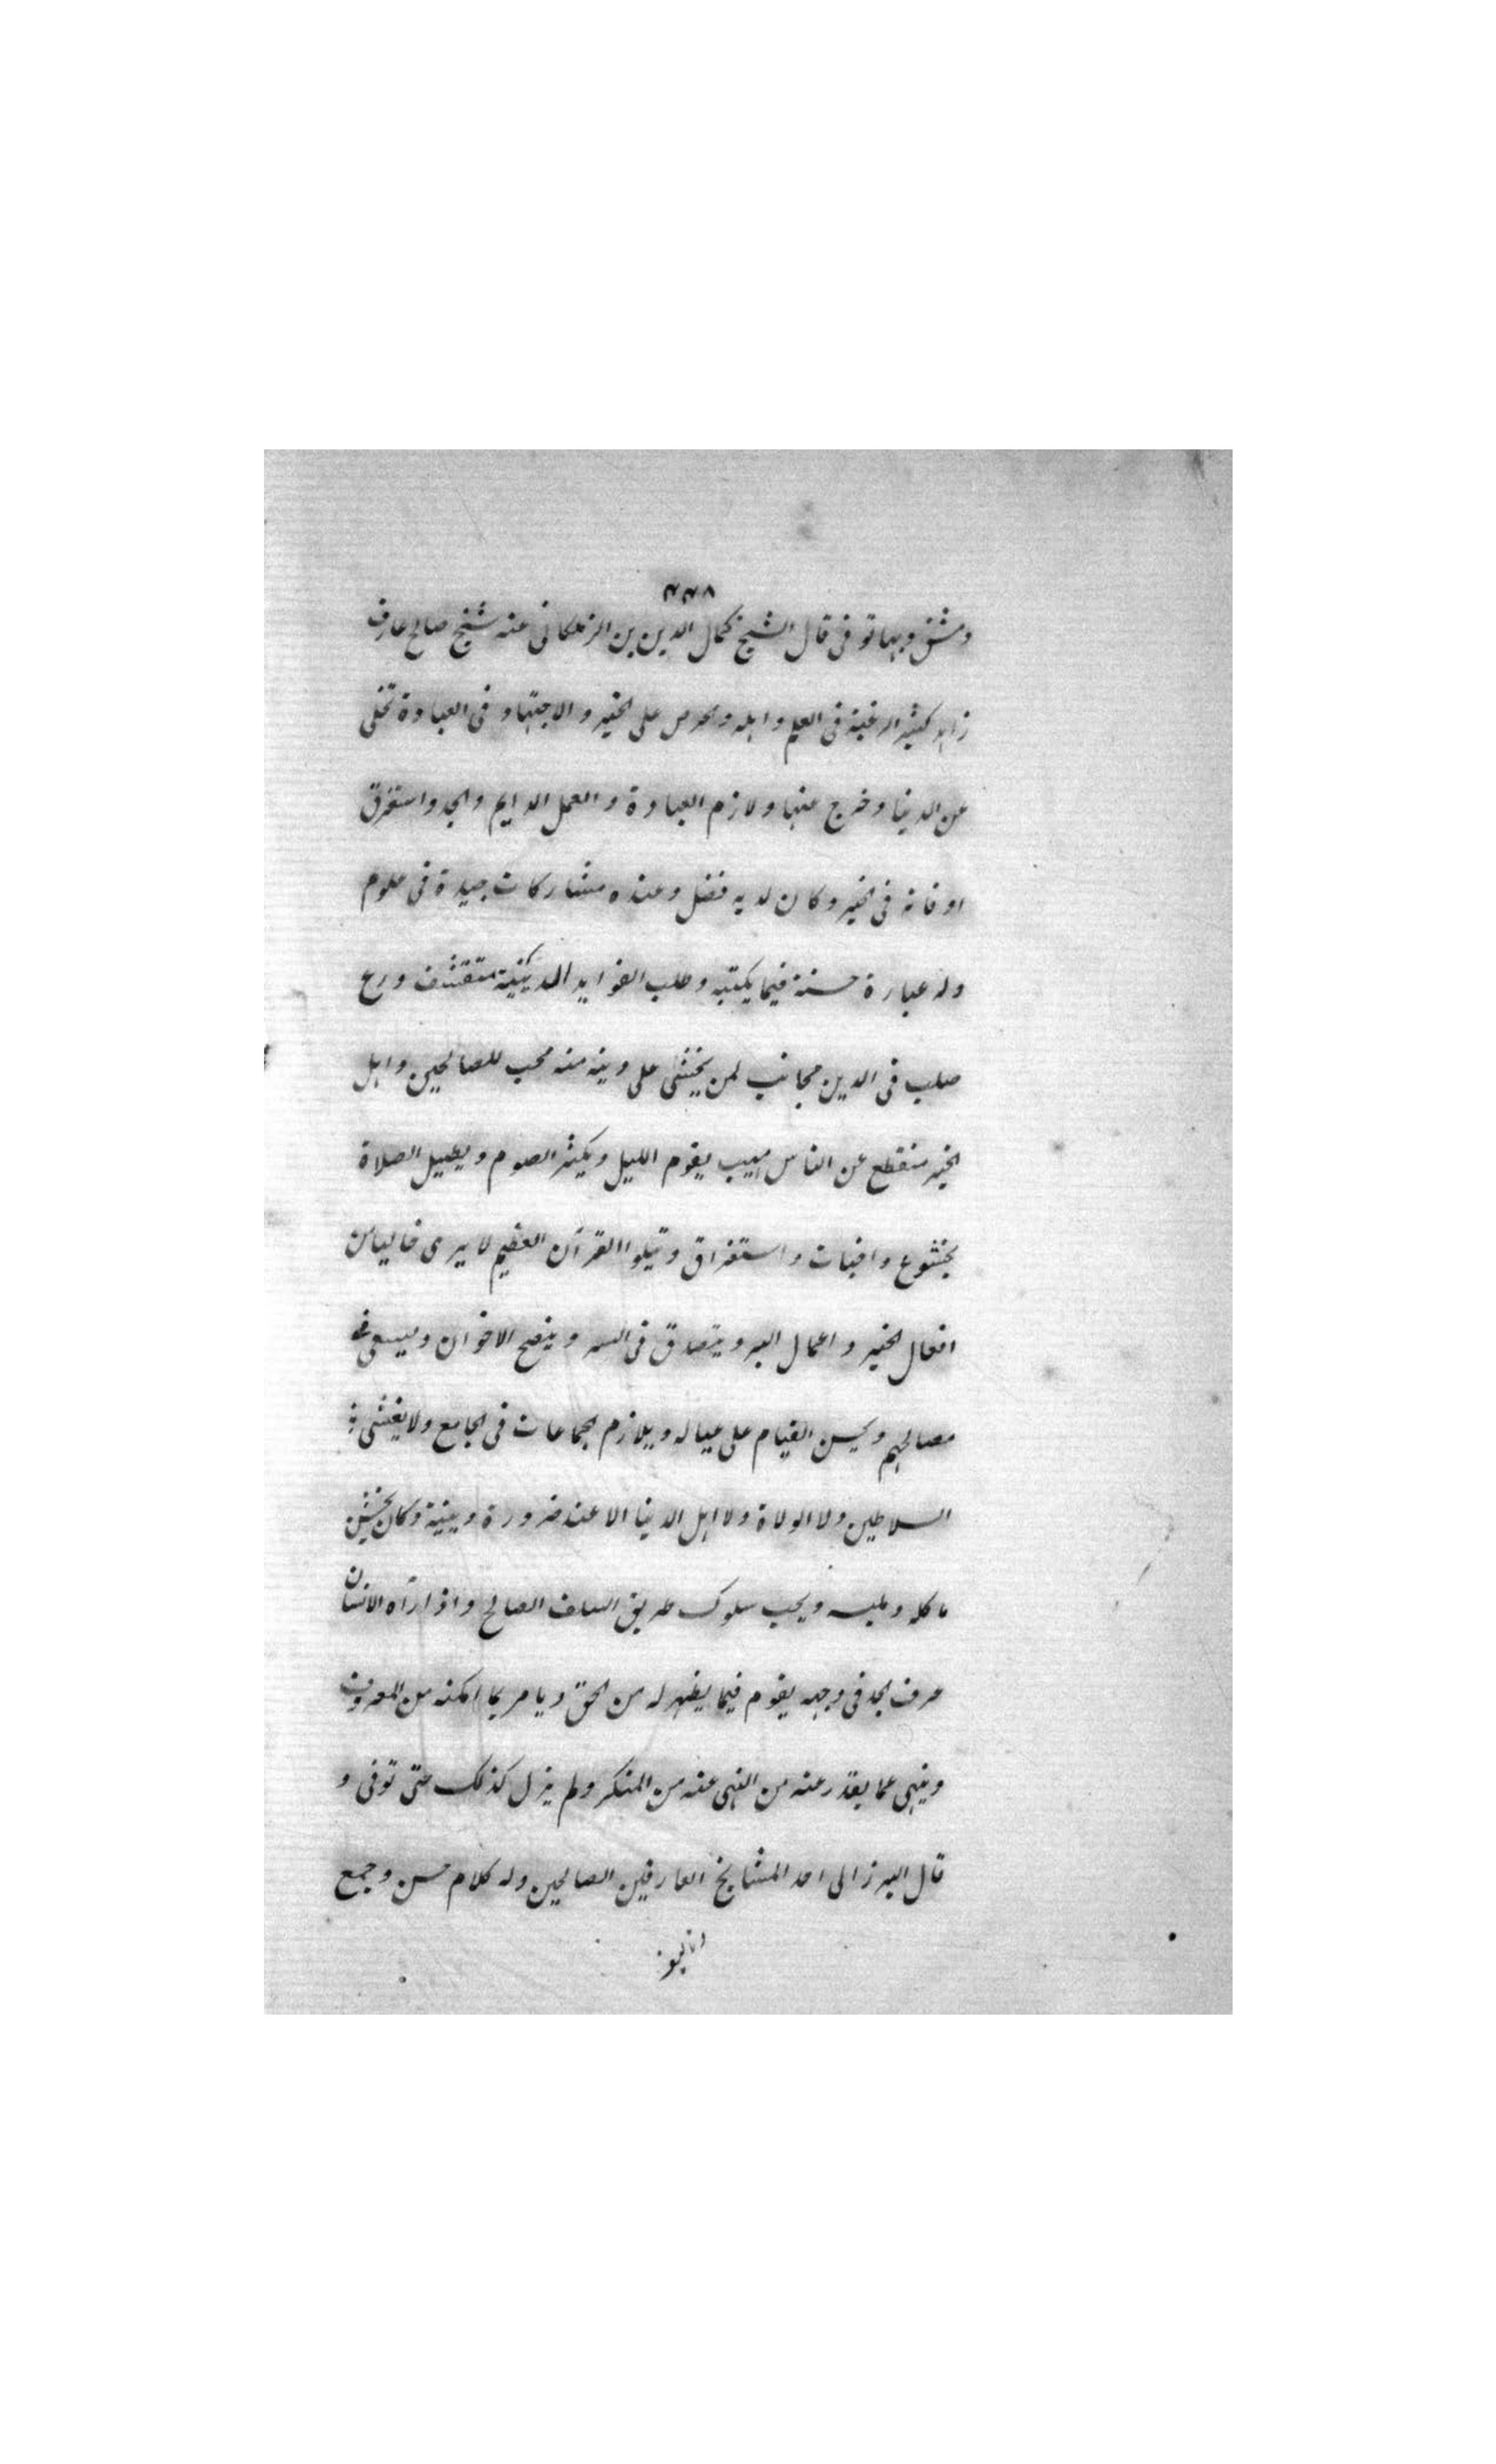 ٣٣٨
دمشق وبها توفى قال الشيخ كمال الدين بن الزملكانى عنه شيخ صالح عارف
زاهد كثير الرغبة فى العلم واهله والحرص على الخير والاجتهاد فى العبادة تخلى
عن الدنيا وخرج عنها ولازم العبادة والعمل الدايم والجد واستغرق
اوقاته فى الخير وكان لديه فضل وعنده مشاركات جيدة فى علوم
وله عبارة حسنة فيما يكتبه وطلب الفوايد الدينية متقشف ورع
صلب فى الدين مجانب لمن يخشى على دينه منه محب للصالحين واهل
الخير منقطع عن الناس مهيب يقوم الليل ويكثر الصوم ويطيل الصلاة
بخشوع واخبات واستغراق ويتلوا القرآن العظيم لا يرى خاليا من
افعال الخير واعمال البر ويتصدق فى السر وينصح الاخوان ويسعى فى
مصالحهم ويحسن القيام على عياله ويلازم الجماعات فى الجامع ولا يغشى
السلاطين ولا الولاة ولا اهل الدنيا الا عند ضرورة دينية وكان يخشن
ماكله وملبسه ويحب سلوك طريق السلف الصالح واذا رآه الانسان
عرف الجد فى وجهه يقوم فيما يظهر له من الحق ويامر بما امكنه من المعروف
وينهى عما يقدر عنه من النهى عنه من المنكر ولم يزل كذلك حتى توفى و
قال البرزالى احد المشايخ العارفين الصالحين وله كلام حسن وجمع